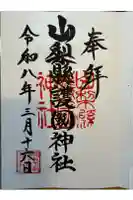 奉拝
山梨縣護國神社
令和八年三月十六日